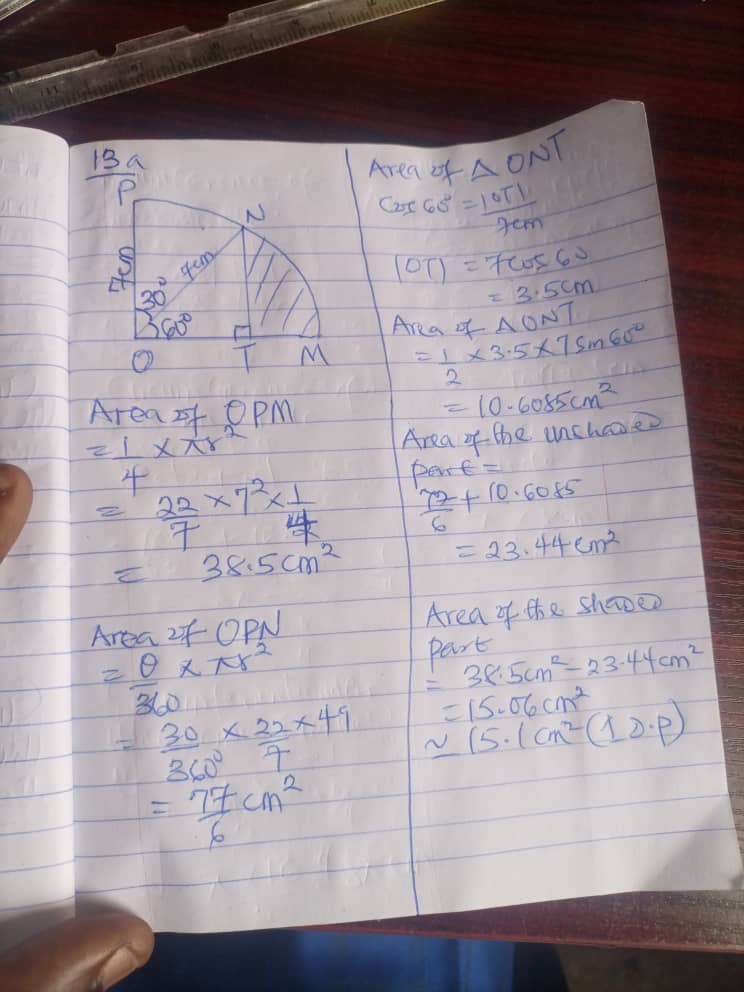 13a
P
N
7cm
7cm
30°
60°
O T M
Area of OPM
= 1/4 × πr²
= 22/7 × 7² × 1/4
= 38.5cm²
Area of OPN
= θ/360 × πr²
= 30/360° × 22/7 × 49
= 77/6 cm²
Area of △ ONT
Cos 60° = |OT|/7cm
|OT| = 7cos 60
= 3.5cm
Area of △ ONT
= 1/2 × 3.5 × 7 Sin 60°
= 10.6085cm²
Area of the unshaded
part =
77/6 + 10.6085
= 23.44cm²
Area of the shaded
part
= 38.5cm² – 23.44cm²
= 15.06cm²
≃ 15.1cm² (1 D.P)